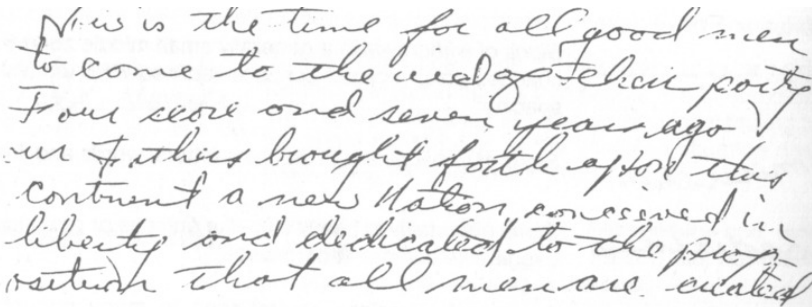 Now is the time for all good men
to come to the aid of their party
Four score and seven years ago
our Fathers brought forth upon this
continent a new Nation, conceived in
liberty and dedicated to the prop-
osition that all men are created